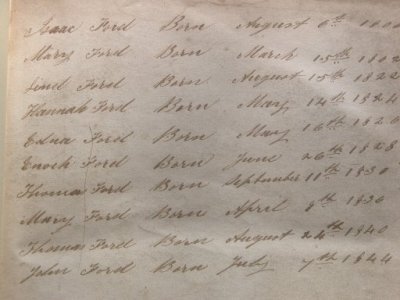 Isaac Ford Born August 6th 1800
Mary Ford Born March 15th 1802
Ford Born August 15th 1822
Hannah Ford Born May 14th 1824
Edna Ford Born May 16th 1826
Enoch Ford Born June 26th 1828
Thomas Ford Born September 11th 1830
Mary Ford Born April 8th 1836
Thomas Ford Born August 24th 1840
John Ford Born July 7th 1844